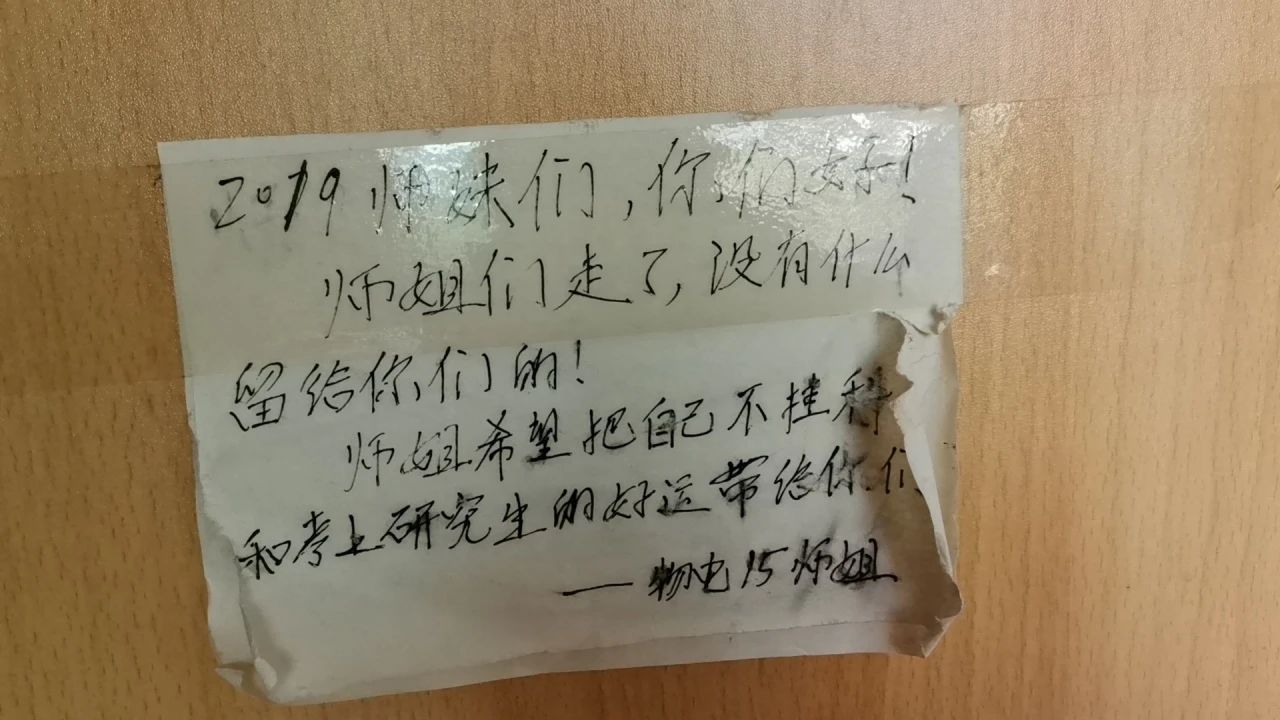 2019师妹们，你们好！
师姐们走了，没有什么
留给你们的！
师姐希望把自己不挂科
和考上研究生的好运带给你们
——物电15师姐